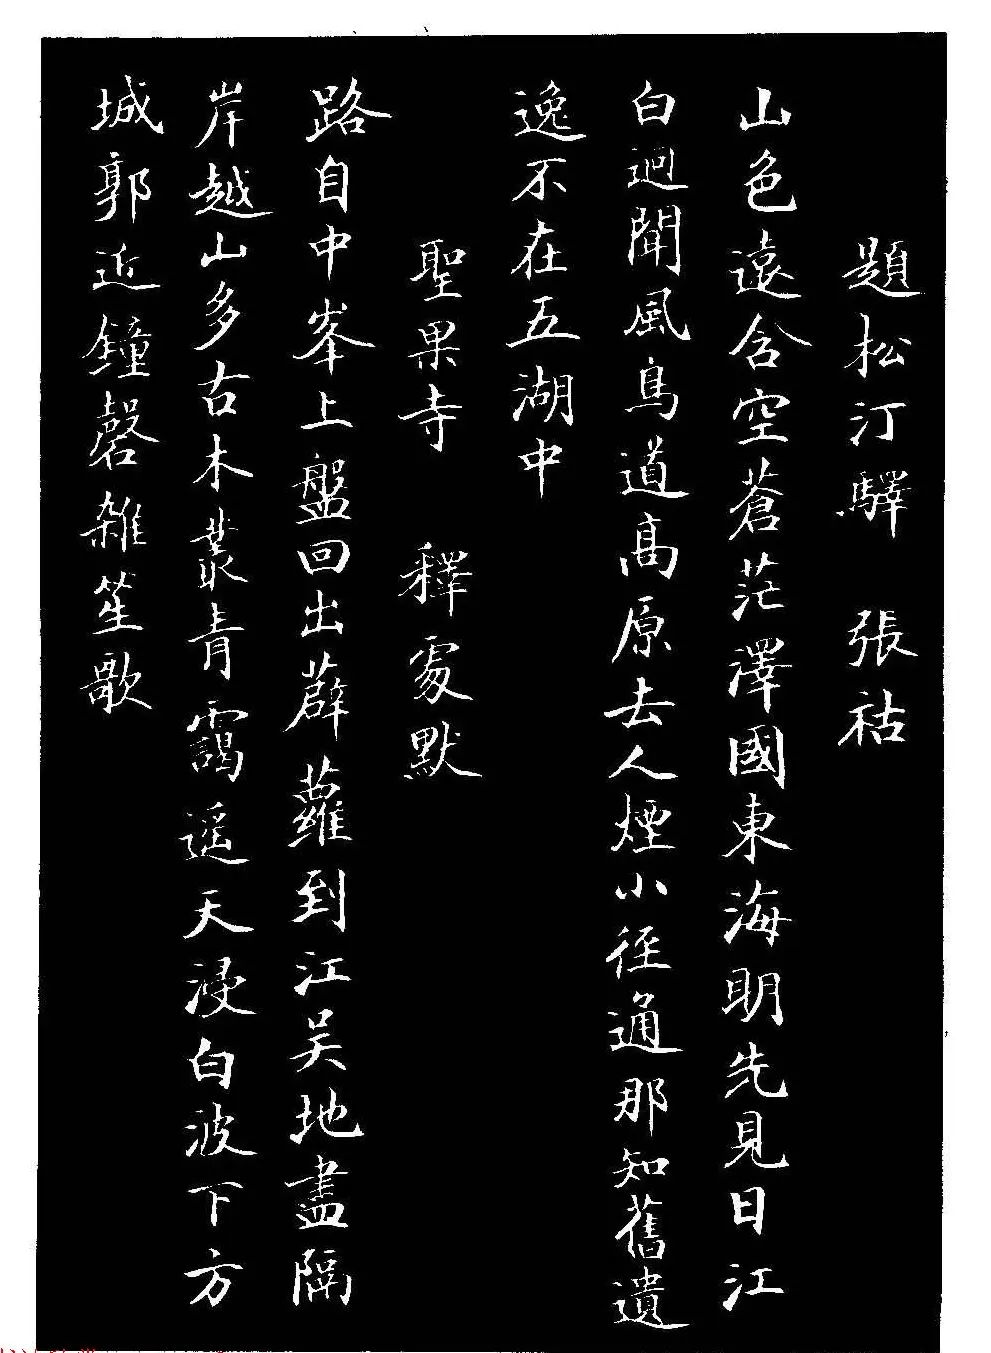 題松汀驛　張祜
山色遠含空蒼茫澤國東海明先見日江
白迥聞風鳥道高原去人煙小徑通那知舊遺
逸不在五湖中
聖果寺　釋處默
路自中峯上盤回出薜蘿到江吴地盡隔
岸越山多古木叢青靄遥天浸白波下方
城郭近鐘磬雑笙歌